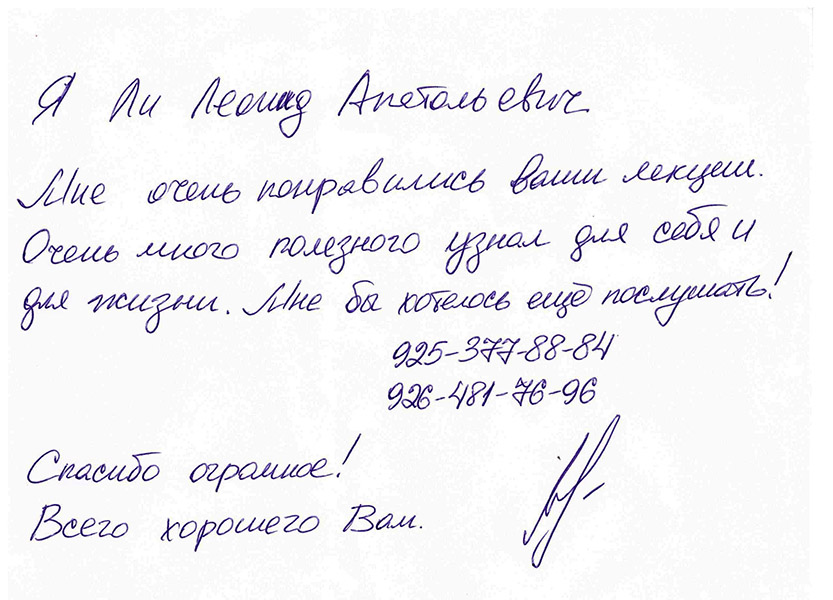 Я Ли Леонид Анатольевич
Мне очень понравились ваши лекции.
Очень много полезного узнал для себя и
для жизни. Мне бы хотелось ещё послушать!
925-377-88-84
926-481-76-96
Спасибо огромное!
Всего хорошего Вам.